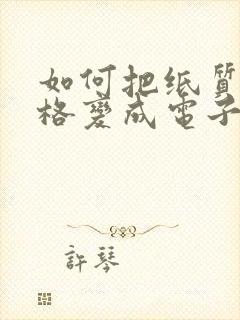 如何把纸质
格变成電子
許琴